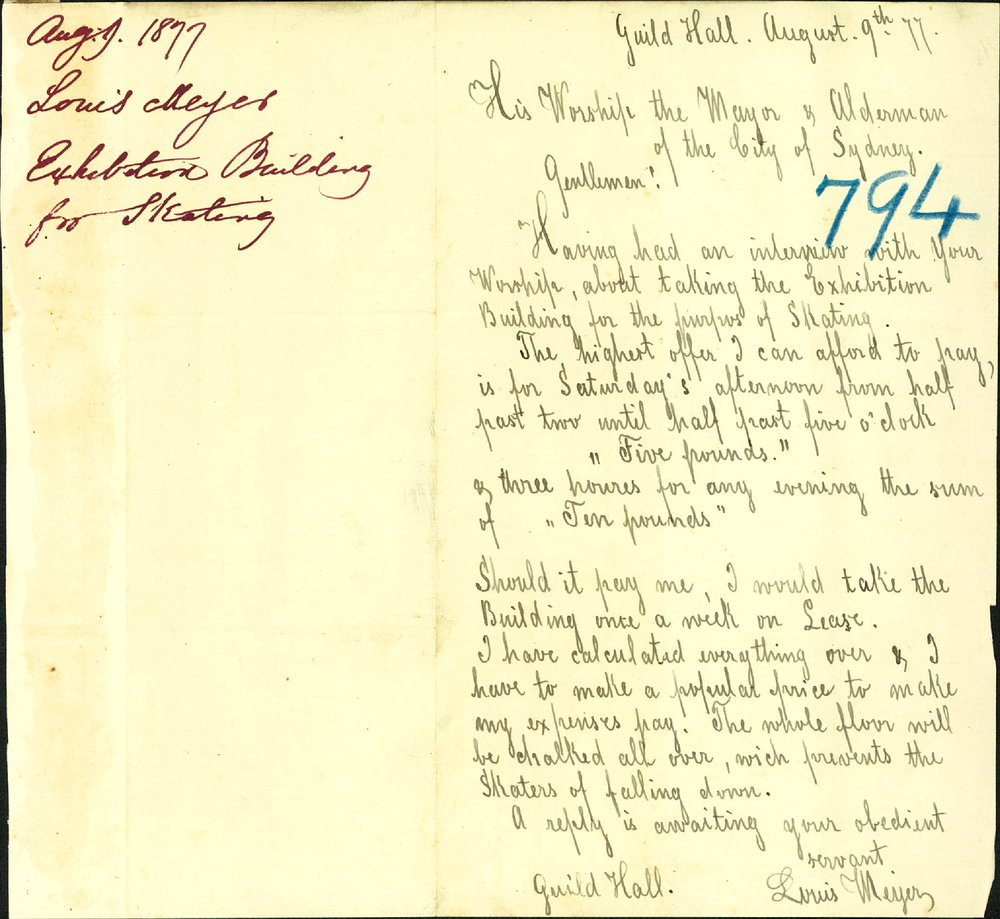 Aug. 9. 1877
Louis Meyer
Exhibition Building
for Skating
Guild Hall. August. 9th 77.
His Worship the Mayor & Alderman
of the City of Sydney.
Gentlemen!
794
Having had an interview with Your
Worship, about taking the Exhibition
Building for the purpos of Skating.
The highest offer I can afford to pay,
is for Saturday's afternoon from half
past two until half past five o'clock
„ Five pounds."
& three houres for any evening the sum
of „ Ten pounds"
Should it pay me, I would take the
Building once a week on Lease.
I have calculated everything over & I
have to make a popular price to make
my expenses pay. The whole floor will
be chalked all over, wich prevents the
Skaters of falling down.
A reply is awaiting your obedient
servant
Guild Hall. Louis Meyer